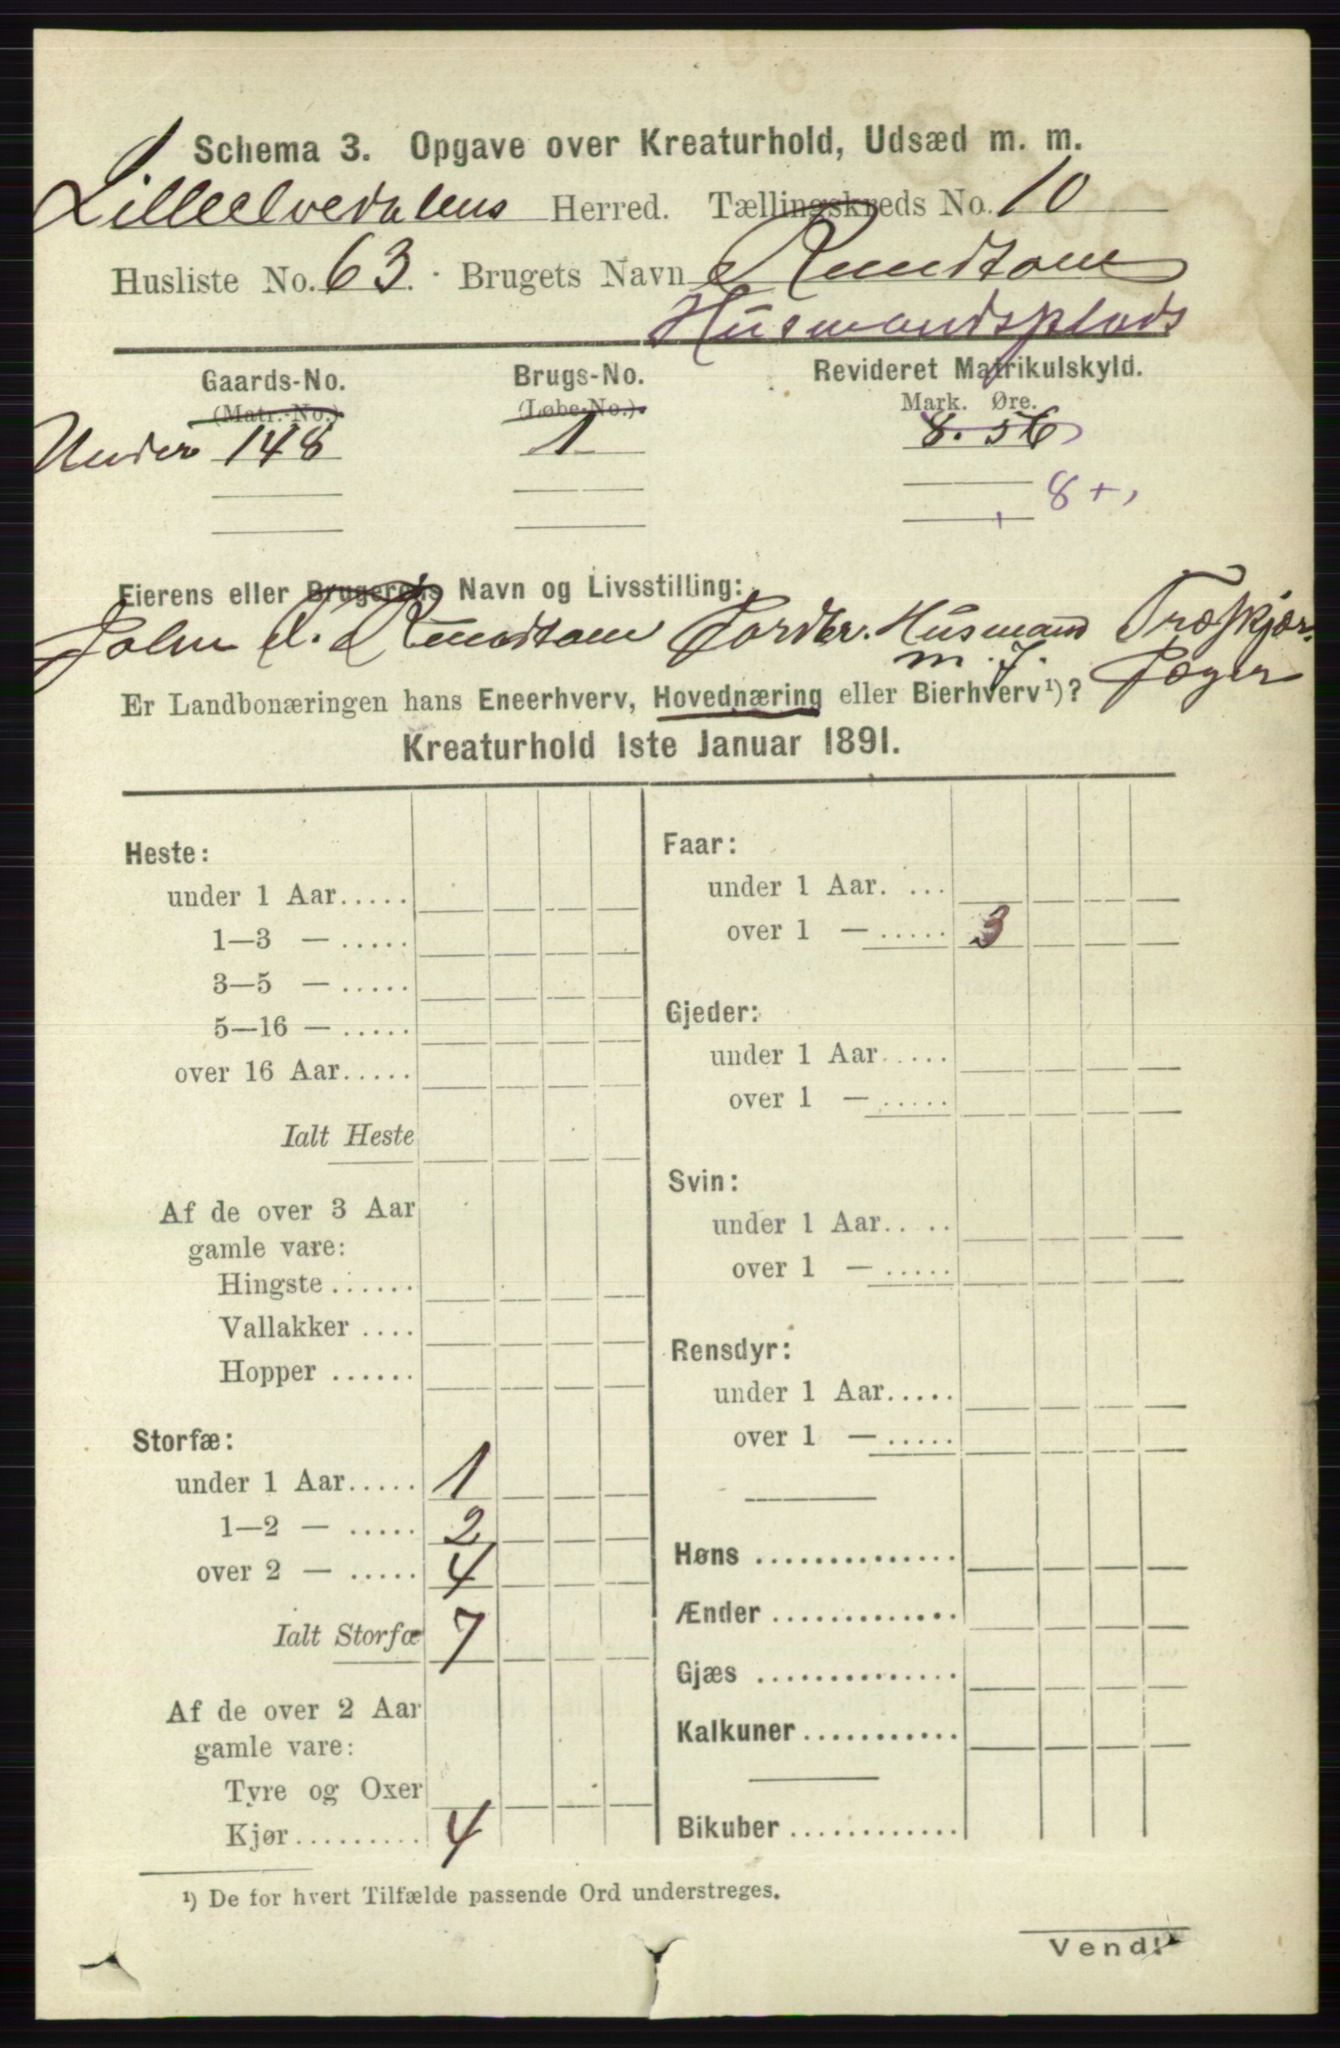 Schema 3. Opgave over Kreaturhold, Udsæd m. m.
Lilleelvedalens Herred. Tællingskreds No. 10
Husliste No. 63. Brugets Navn Rundtom
Husmandsplads
Gaards-No. Brugs-No. Revideret Matrikulskyld.
(Matr.-No.) (Løbe-No.) Mark. Øre.
Under 148 1 8. 56
8 +,
Eierens eller Brugerens Navn og Livsstilling:
John Rundtom Jordbr. Husmand Træskjær.
m. J. Jæger
Er Landbonæringen hans Eneerhverv, Hovednæring eller Bierhverv¹)?
Kreaturhold 1ste Januar 1891.
Heste:
under 1 Aar.....
1—3 — .....
3—5 — .....
5—16 — .....
over 16 Aar.....
Ialt Heste
Af de over 3 Aar
gamle vare:
Hingste ......
Vallakker ....
Hopper ......
Storfæ:
under 1 Aar..... 1
1—2 — ..... 2
over 2 — ..... 4
Ialt Storfæ 7
Af de over 2 Aar
gamle vare:
Tyre og Oxer
Kjør......... 4
Faar:
under 1 Aar. ...
over 1 — ..... 3
Gjeder:
under 1 Aar.....
over 1 — .....
Svin:
under 1 Aar.....
over 1 — .....
Rensdyr:
under 1 Aar.....
over 1 — .....
Høns ..............
Ænder .............
Gjæs ..............
Kalkuner...........
Bikuber ............
¹) De for hvert Tilfælde passende Ord understreges.
Vend!